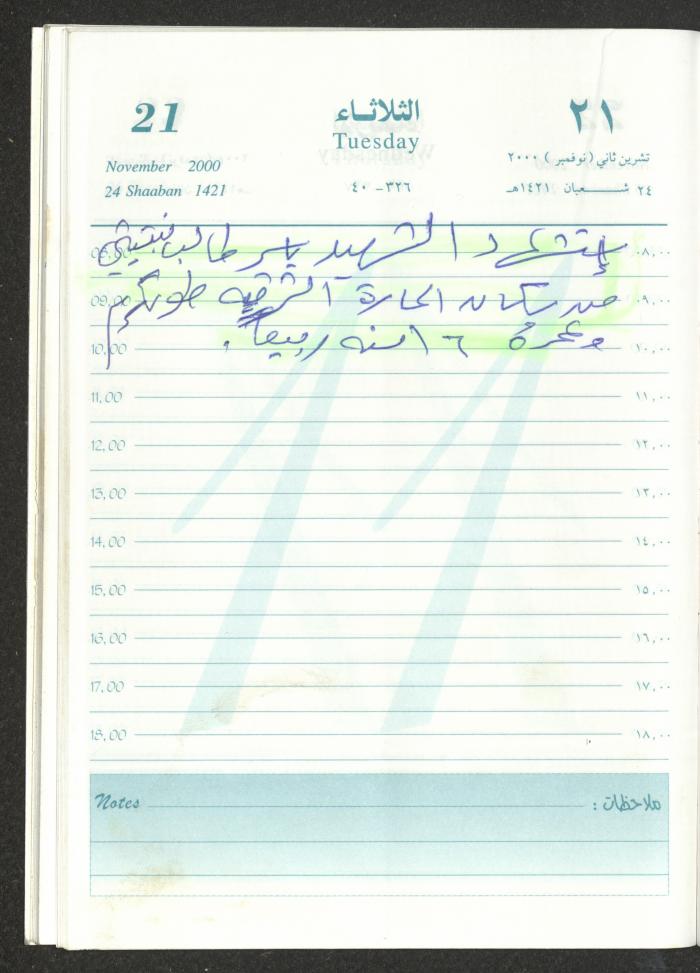 21 الثلاثاء ٢١
Tuesday
November 2000 تشرين ثاني ( نوفمبر ) ٢٠٠٠
24 Shaaban 1421 ٣٢٦ - ٤٠ ٢٤ شعبان ١٤٢١هـ
إستشهاد الشهيد ياسر طالب
08.00 ٠٨,٠٠
من سكان الحارة الشرقيه طولكرم
09.00 ٠٩,٠٠
وعمرة ١٦ سنه ربيعاً .
10.00 ١٠,٠٠
11.00 ١١,٠٠
12.00 ١٢,٠٠
13.00 ١٣,٠٠
14.00 ١٤,٠٠
15.00 ١٥,٠٠
16.00 ١٦,٠٠
17.00 ١٧,٠٠
18.00 ١٨,٠٠
Notes ملاحظات :